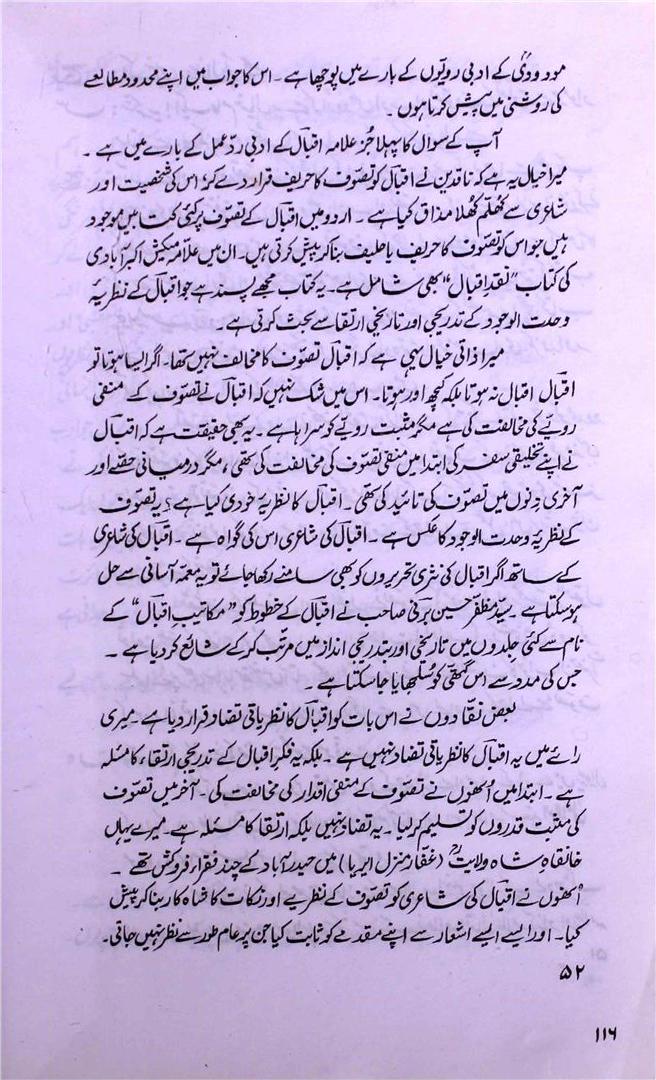 مودودیؒ کے ادبی رویّوں کے بارے میں پوچھا ہے۔ اس کا جواب میں اپنے محدود مطالعے
کی روشنی میں پیش کرتا ہوں۔
آپ کے سوال کا پہلا جُز علامہ اقبالؔ کے ادبی ردِّ عمل کے بارے میں ہے۔
میرا خیال یہ ہے کہ ناقدین نے اقبال کو تصوّف کا حریف قرار دے کر اس کی شخصیت اور
شاعری سے کھُلم کھُلا مذاق کیا ہے۔ اردو میں اقبال کے تصوّف پر کئی کتابیں موجود
ہیں جو اس کو تصوّف کا حریف یا حلیف بنا کر پیش کرتی ہیں۔ ان میں علامہ میکش اکبرآبادی
کی کتاب "نقدِ اقبال" بھی شامل ہے۔ یہ کتاب مجھے پسند ہے جو اقبال کے نظریۂ
وحدت الوجود کے تدریجی اور تاریخی ارتقا سے بحث کرتی ہے۔
میرا ذاتی خیال یہی ہے کہ اقبال تصوّف کا مخالف نہیں تھا۔ اگر ایسا ہوتا تو
اقبالؔ اقبال نہ ہوتا بلکہ کچھ اور ہوتا۔ اس میں شک نہیں کہ اقبال نے تصوّف کے منفی
رویّے کی مخالفت کی ہے مگر مثبت رویّے کو سراہا ہے۔ یہ بھی حقیقت ہے کہ اقبال
نے اپنے تخلیقی سفر کی ابتدا میں منفی تصوّف کی مخالفت کی تھی، مگر درمیانی حصّے اور
آخری دِنوں میں تصوّف کی تائید کی تھی۔ اقبال کا نظریۂ خودی کیا ہے؟ یہ تصوّف
کے نظریۂ وحدت الوجود کا عکس ہے۔ اقبالؔ کی شاعری اس کی گواہ ہے۔ اقبالؔ کی شاعری
کے ساتھ اگر اقبال کی نثری تحریروں کو بھی سامنے رکھا جائے تو یہ معمّہ آسانی سے حل
ہو سکتا ہے۔ سیّد مظفر حسین برنی صاحب نے اقبال کے خطوط کو "مکاتیبِ اقبال" کے
نام سے کئی جلدوں میں تاریخی اور بتدریجی انداز میں مرتّب کر کے شائع کر دیا ہے۔
جس کی مدد سے اس گتھی کو سُلجھایا جا سکتا ہے۔
بعض نقّادوں نے اس بات کو اقبالؔ کا نظریاتی تضاد قرار دیا ہے۔ میری
رائے میں یہ اقبالؔ کا نظریاتی تضاد نہیں ہے۔ بلکہ یہ فکرِ اقبال کے تدریجی ارتقاء کا مسئلہ
ہے۔ ابتدا میں اُنھوں نے تصوّف کے منفی اقدار کی مخالفت کی۔ آخر میں تصوّف
کی مثبت قدروں کو تسلیم کر لیا۔ یہ تضاد نہیں بلکہ ارتقا کا مسئلہ ہے۔ میرے یہاں
خانقاہِ شاہ ولایتؒ (غفّار منزل ایریا) میں حیدرآباد کے چند فقراء فروکش تھے۔
اُنھوں نے اقبالؔ کی شاعری کو تصوّف کے نظریے اور نکات کا شاہکار بنا کر پیش
کیا۔ اور ایسے ایسے اشعار سے اپنے مقدمے کو ثابت کیا جن پر عام طور سے نظر نہیں جاتی۔
۵۲
۱۱۶